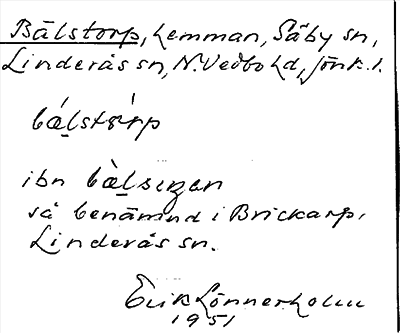 Bälstorp, hemman, Säby sn,
Linderås sn, N. Vedbo hd, Jönk. l.
bá̱lstorp
ibn bà̱lsɩgan
så benämnd i Brickarp,
Linderås sn.
Erik Lönnerholm
1951